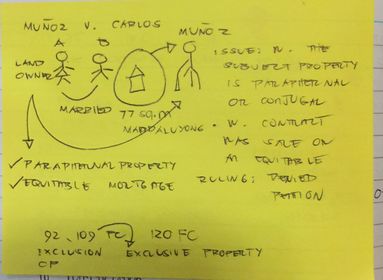 MUÑOZ V. CARLOS
A
B
MUÑOZ
LAND
OWNER
MARRIED
77 SQ.M
MANDALUYONG
✓ PARAPHERNAL PROPERTY
✓ EQUITABLE MORTGAGE
• ISSUE: W. THE
SUBJECT PROPERTY
IS PARAPHERNAL
OR CONJUGAL
• W. CONTRACT
WAS SALE OR
AN EQUITABLE
RULING: DENIED
PETITION
92, 109 FC, 120 FC
EXCLUSION EXCLUSIVE PROPERTY
OF